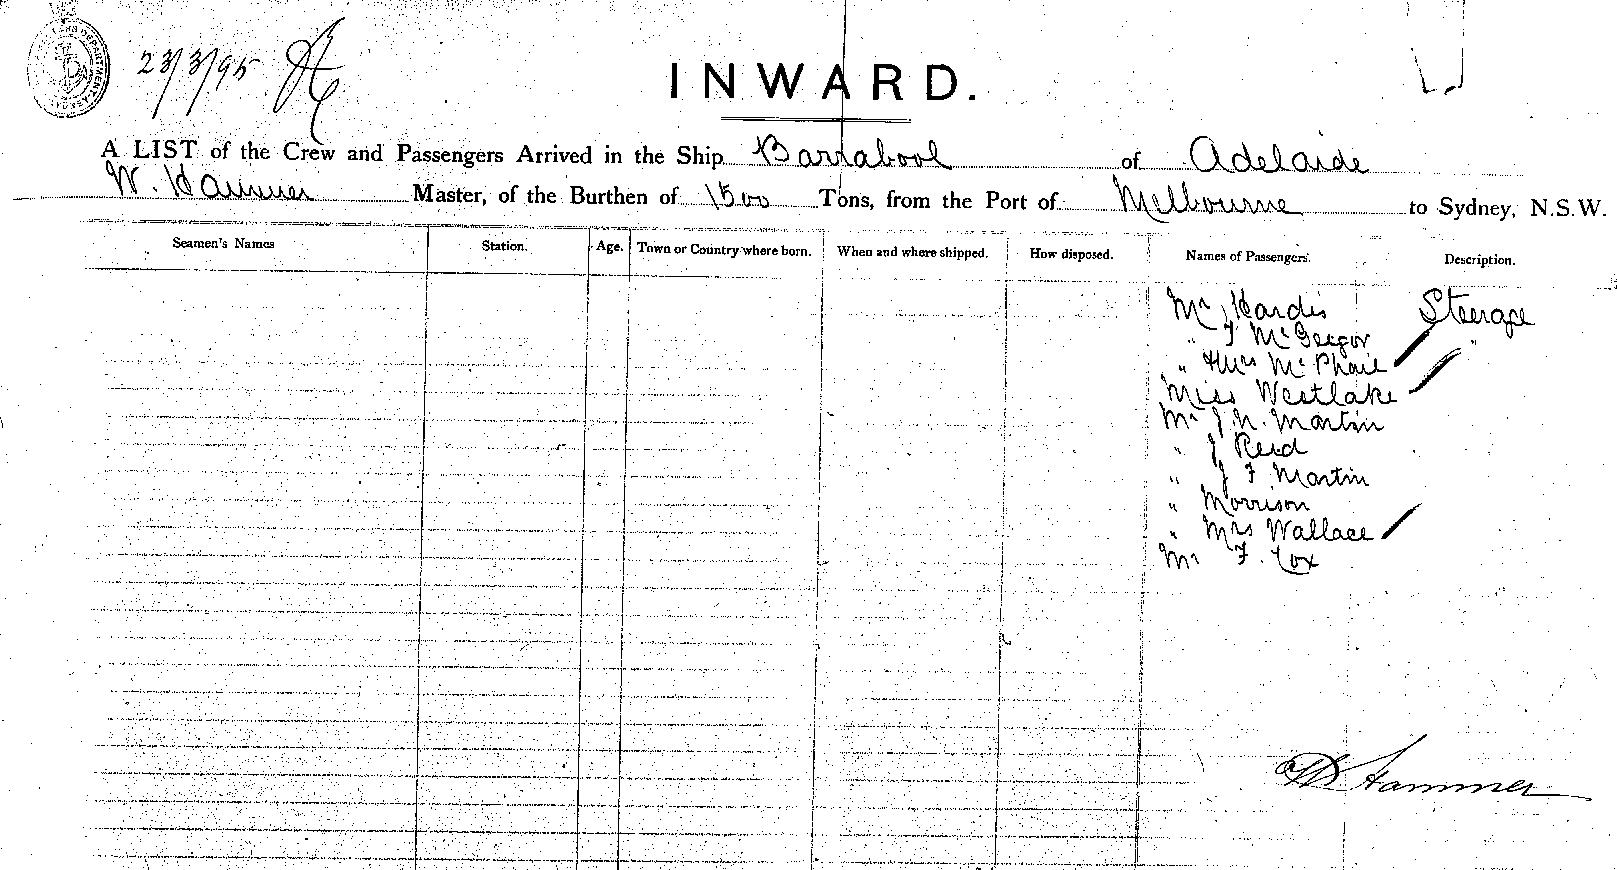 23/3/95
INWARD.
A LIST of the Crew and Passengers Arrived in the Ship Barrabool of Adelaide
W. Hammer Master, of the Burthen of 1500 Tons, from the Port of Melbourne to Sydney, N.S.W.
Seamen's Names Station. Age. Town or Country where born. When and where shipped. How disposed. Names of Passengers. Description.
Mr Hardis Steerage
" J McGregor
" & Mrs McPhail "
Miss Westlake
Mr J. N. Martin
" J Reid
" J F. Martin
" Morrison
" Mrs Wallace
Mr F. Cox
Hammer